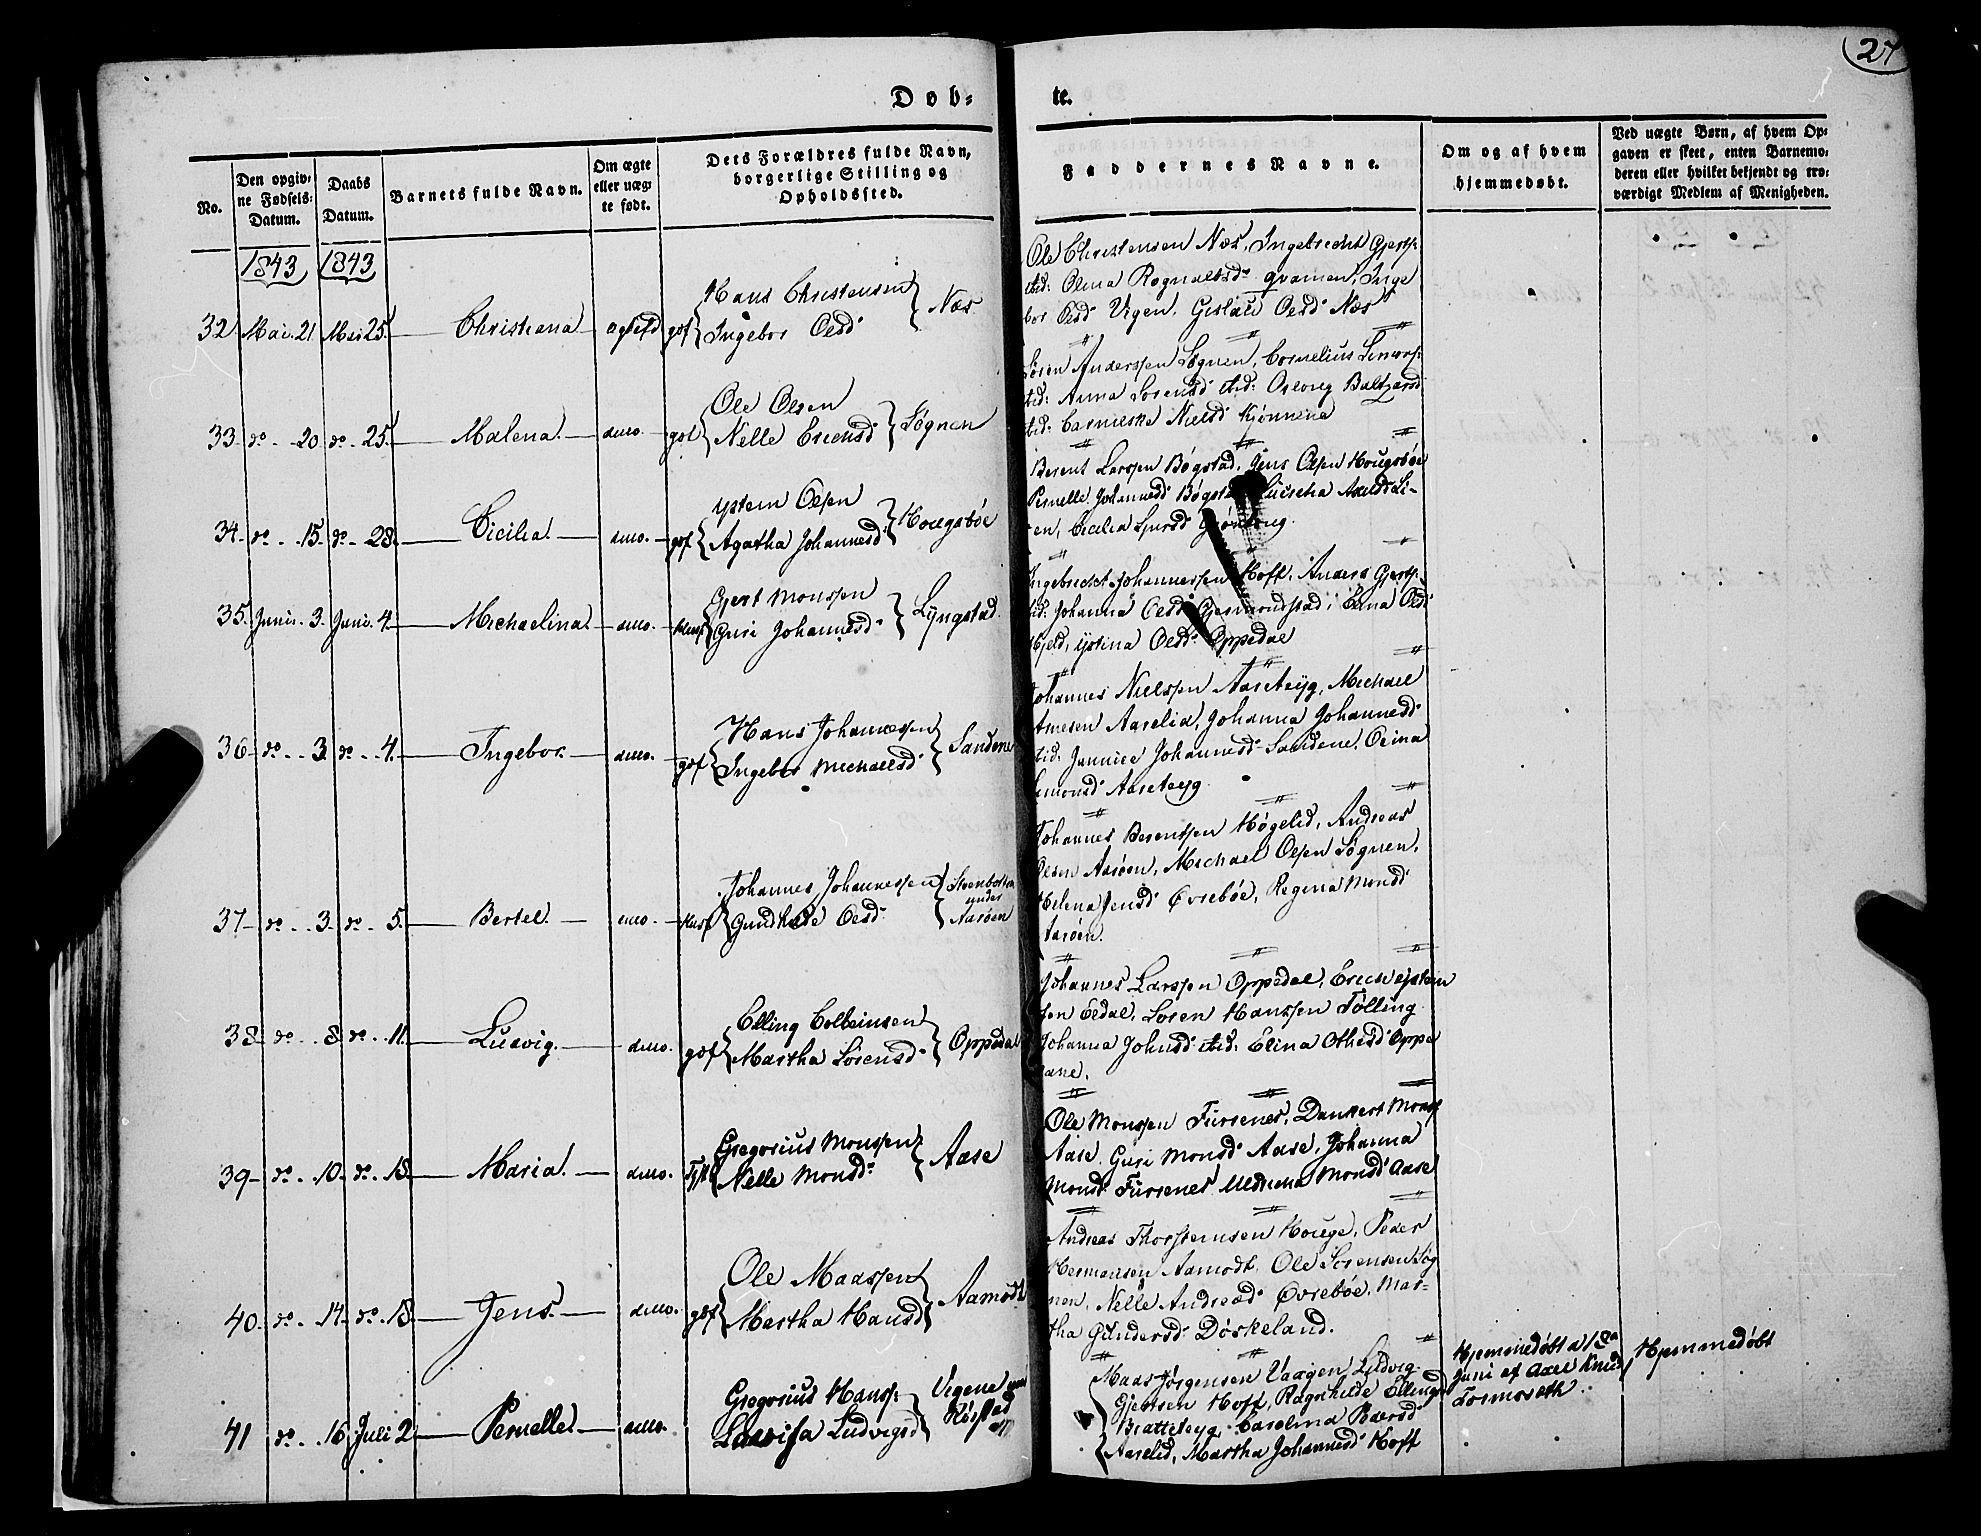 27
Døb-
te.
No.
Den opgiv-
ne Fødsels-
Datum.
Daabs
Datum.
Barnets fulde Navn.
Om ægte
eller uæg-
te født.
Dets Forældres fulde Navn,
borgerlige Stilling og
Opholdssted.
Faddernes Navne.
Om og af hvem
hjemmedøbt.
Ved uægte Børn, af hvem Op-
gaven er skeet, enten Barnemo-
deren eller hvilket bekjendt og tro-
værdigt Medlem af Menigheden.
1843 1843
32 Mai. 21 Mai 25 Christiana
gmf Hans Christensen
Ingebor Olsd Næs
Ole Christensen Næs, Ingebrecht Gjerts:
ibid: Anna Rognaldsd: Qvamen, Inge
bor Olsd Vigen, Gislau Olsd Næs
33 do 20 do 25 Malena do
gmf Ole Olsen
Nelle Erichsd Søgnen
Søren Anderssen Søgnen, Cornelius
ibid: Anna Sørensd ibid: Baltzarsd
ibid: Nielsd
34 do 15 do 28 Cicilia do
gmf ystein Olsen
Agatha Johannesd Hougsbøe
Berent Larssen Bøgstad, Jens Olsen Hougsbøe
Pernelle Johannesd
en, Cicilia
35 Juni. 3 Juni. 4 Michaelina do
Gjert Monssen
Guri Johannesd Lyngstad
Ingebrecht Johannessen Hoff, Anders Gjerts:
ibid: Johanna Olsd Gjesmundstad, Elina Olsd
ystina Olsd Oppedal
36 do 3 do 4 Ingebor do
gmf Hans Johannessen
Ingebor Michaelsd Sandene
Johannes Nielssen Aaseteyg, Michael
Arnesen Aaselid, Johanna Johannesd
ibid: Johannesd Sandene, Olina
Simonsd Aaseteyg
37 do 3 do 5 Bertel do
Johannes Johannessen
Gundhilde Olsd
under
Aarøen
Johannes Berentsen Høgelid, Andreas
Olsen Aarøen, Michael Olsen Søgnen,
Helena Jensd Øvrebøe, Regina Monsd
Aarøen.
38 do 8 do 11 Ludvig do
gmf Elling Colbeinsen
Martha Sørensd Oppedal
Johannes Larssen Oppedal, Erich ystein
sen Eldal, Søren Hanssen Tølling
Johanna Johnsd ibid: Elina Othesd Oppe
dal.
39 do 10 do 18 Maria do
Gregorius Monssen
Nelle Monsd Aase
Ole Monssen Fursenes, Dankert Monss
Aase, Guri Monsd Aase, Johanna
Monsd Fursenes, Monsd Aase
40 do 14 do 18 Jens do
gmf Ole Maassen
Martha Hansd Aamodt
Andreas Thorsteinsen Houge, Peder
Hermansen Aamodt, Ole Sørensen Søg
nen, Nelle Andreæd Øvrebøe, Mar-
tha Gundersd Døskeland.
41 do 16 Juli 2 Pernelle do
Gregorius Hanss:
Lovisa Ludvigsd
Maas Jørgensen Vaagen, Ludvig
Gjertsen Hoff, Ragnhilde Ellingsd
Bratteteyg, Carolina Peersd
Aaselid, Martha Johannesd Hoff
Hjemmedøbt
Juni af Axel Knud
Hjemmedøbt